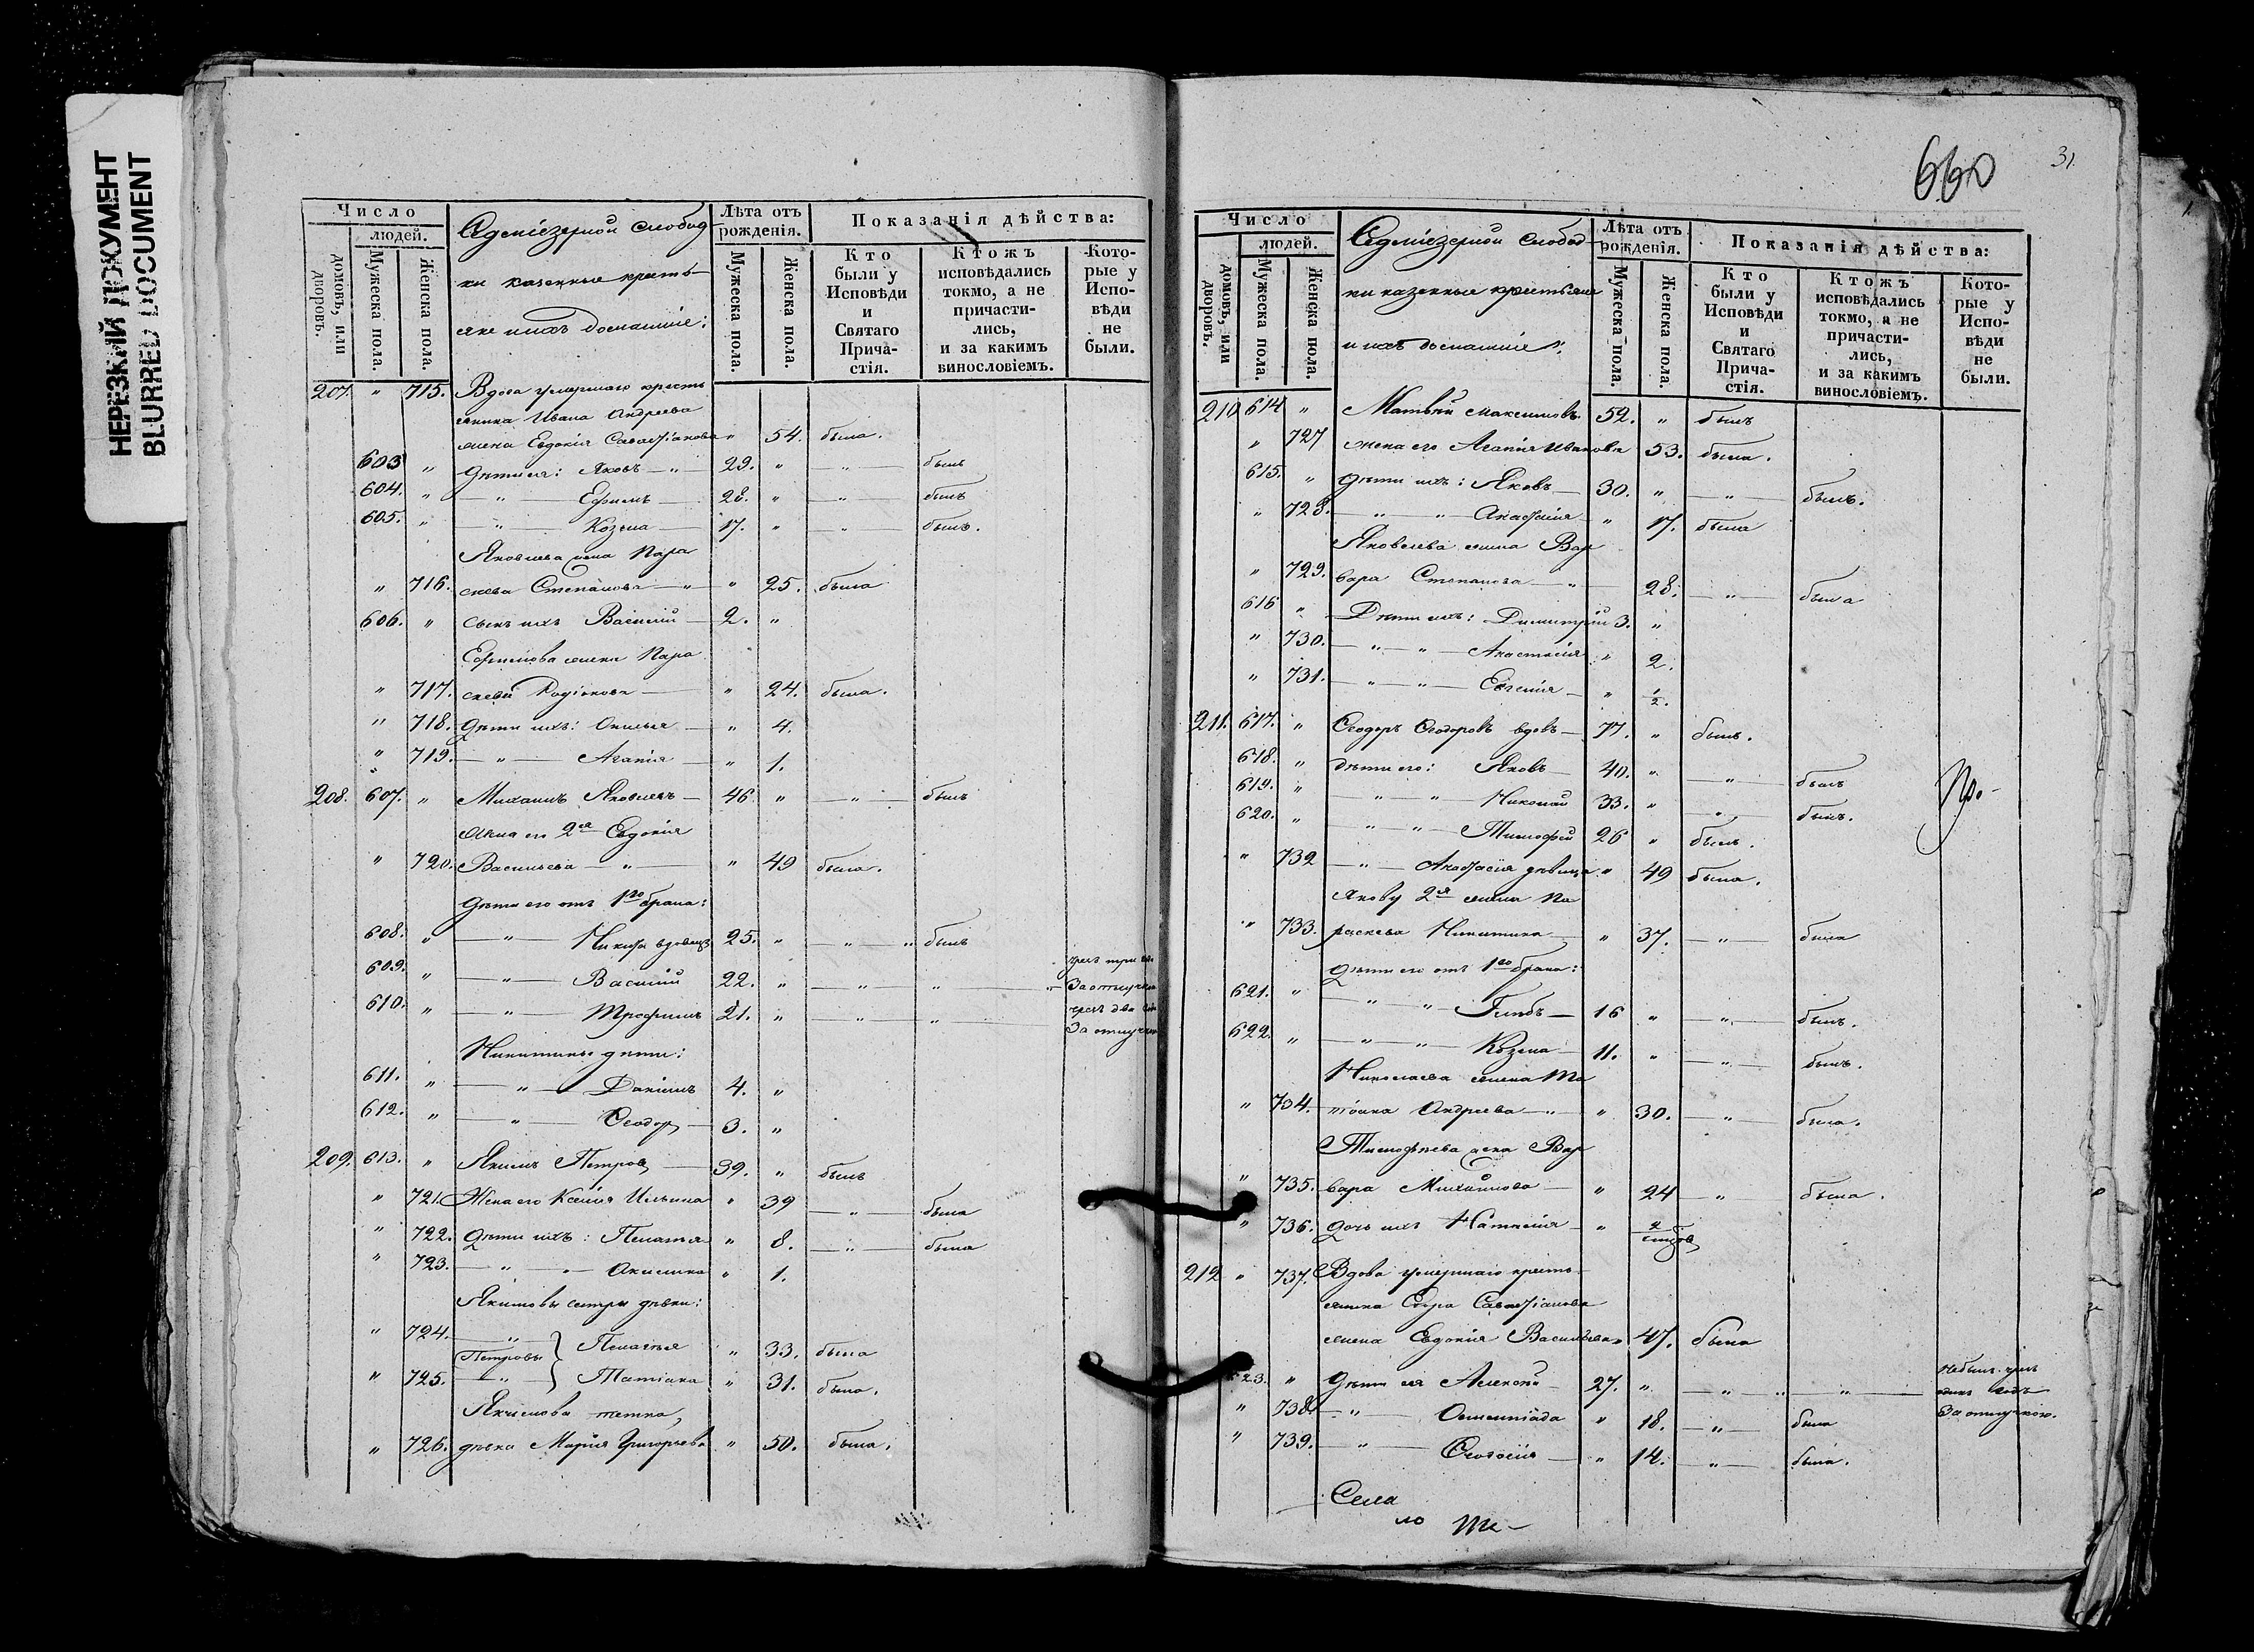 НЕРЕЗКИЙ ДОКУМЕНТ
BLURRED DOCUMENT
Число
людей.
домовъ, или дворовъ.
Мужеска пола.
Женска пола.
Седміезерной слобод-
ки казенные кресть-
яне и ихъ домашніе:
Лѣта отъ рожденія.
Мужеска пола.
Женска пола.
Показанія дѣйства:
Кто были у Исповѣди и Святаго Прича-стія.
Ктожъ исповѣдались токмо, а не причасти-лись, и за какимъ винословіемъ.
Кото-рые у Испо-вѣди не были.
207. " 715. Вдова умершаго кресть
янина Ивана Андреева
жена Евдокія Саватіанова " 54. была.
603 " дѣти ея: Яковъ — " 29. " — " — былъ
604. " — " — Ефимъ — 28. " — " — былъ
605. " — " — Козьма — 17. " — " — былъ.
Яковлева жена Пара
" 716. скева Степанова — " — " 25. была
606. " сынъ ихъ Василій — 2. "
Ефимова жена Пара
" 717. скева Родіонова — " 24. была.
" 718. дѣти ихъ: — " 4.
" 719. — " — Агапія — " 1.
208. 607. " Михаилъ Яковлевъ — 46 " — " — былъ
жена его 2я Евдокія
" 720. Васильева — " — " 49 была.
дѣти его отъ 1го брака:
608. " — " — Никита вдовецъ 25. " — " — " былъ
609. " — " — Василій 22. " — " — " — " чрезъ три
За отлучкою
610. " — " — Трофимъ 21. " — " — " — чрезъ два
За отлучкою
Никитины дѣти:
611. " — " — Даніилъ 4. "
612. " — " — Ѳеодоръ — 3. "
209. 613. " Якимъ Петровъ — 39. " былъ
" 721. Жена его Ксенія Ильина " 39 — " — была
" 722. дѣти ихъ: Пелагья " 8. — " — была
" 723. — " — " Акилина " 1.
Якимовы сестры дѣвки:
" 724. — " — Пелагья " 33. была
Петровы
" 725. — " — Татіана " 31. была.
Якимова тетка,
" 726. дѣвка Марія Григорьева " 50. была.
660
31.
Число
людей.
домовъ, или дворовъ.
Мужеска пола.
Женска пола.
Седміезерной слобод-
ки казенные крестьяне
и ихъ домашніе:
Лѣта отъ рожденія.
Мужеска пола.
Женска пола.
Показанія дѣйства:
Кто были у Исповѣди и Святаго Прича-стія.
Ктожъ исповѣдались токмо, а не причасти-лись, и за какимъ винословіемъ.
Кото-рые у Испо-вѣди не были.
210 614 " Матвѣй Максимовъ 52. " былъ
" 727 жена его Агапія Иванова 53. была.
615. " дѣти ихъ: Яковъ — 30. " — " — былъ.
" 728. — " — " — " 17. была
Яковлева жена Вар
" 729. вара Степанова — " — 28. — " — была
616 " Дѣти ихъ: Димитрій 3. "
" 730. — " — " — Анастасія " 2.
" 731. — " — " — Евгенія — " 1/2.
211. 617. " Ѳеодоръ Ѳеодоровъ вдовъ — 77. " былъ.
618. " дѣти его: Яковъ — 40. " — " — былъ
619. " — " — " — Николай 33. " — " — былъ.
620. " — " — " — Тимофей 26 " былъ.
" 732 — " — Анастасія дѣвица " 49 была.
Якову 2я жена Па
" 733. раскева Никитина — " 37. — " — была
дѣти его отъ 1го брака:
621. " — " — " Глѣбъ — 16 " — " — былъ.
622. " — " — " — Козьма — 11. " — " — былъ.
Николаева жена Та
" 734. тіана Андреева — " — " 30. — " — была.
Тимофѣева жена Вар
" 735. вара Михайлова — " 24 — " — была.
" 736. дочь ихъ Наталія — "
212 " 737. Вдова умершаго кресть-
янина Егора Саватіанова
жена Евдокія Васильева " 47. была
623. " дѣти ея Алексѣй — 27. " — " — " — " — Небылъ чрезъ
одинъ годъ
За отлучкою.
" 738. — " — Олимпіада " 18. — " — была
" 739. — " — Ѳеодосія — " 14. — " — была.
Села